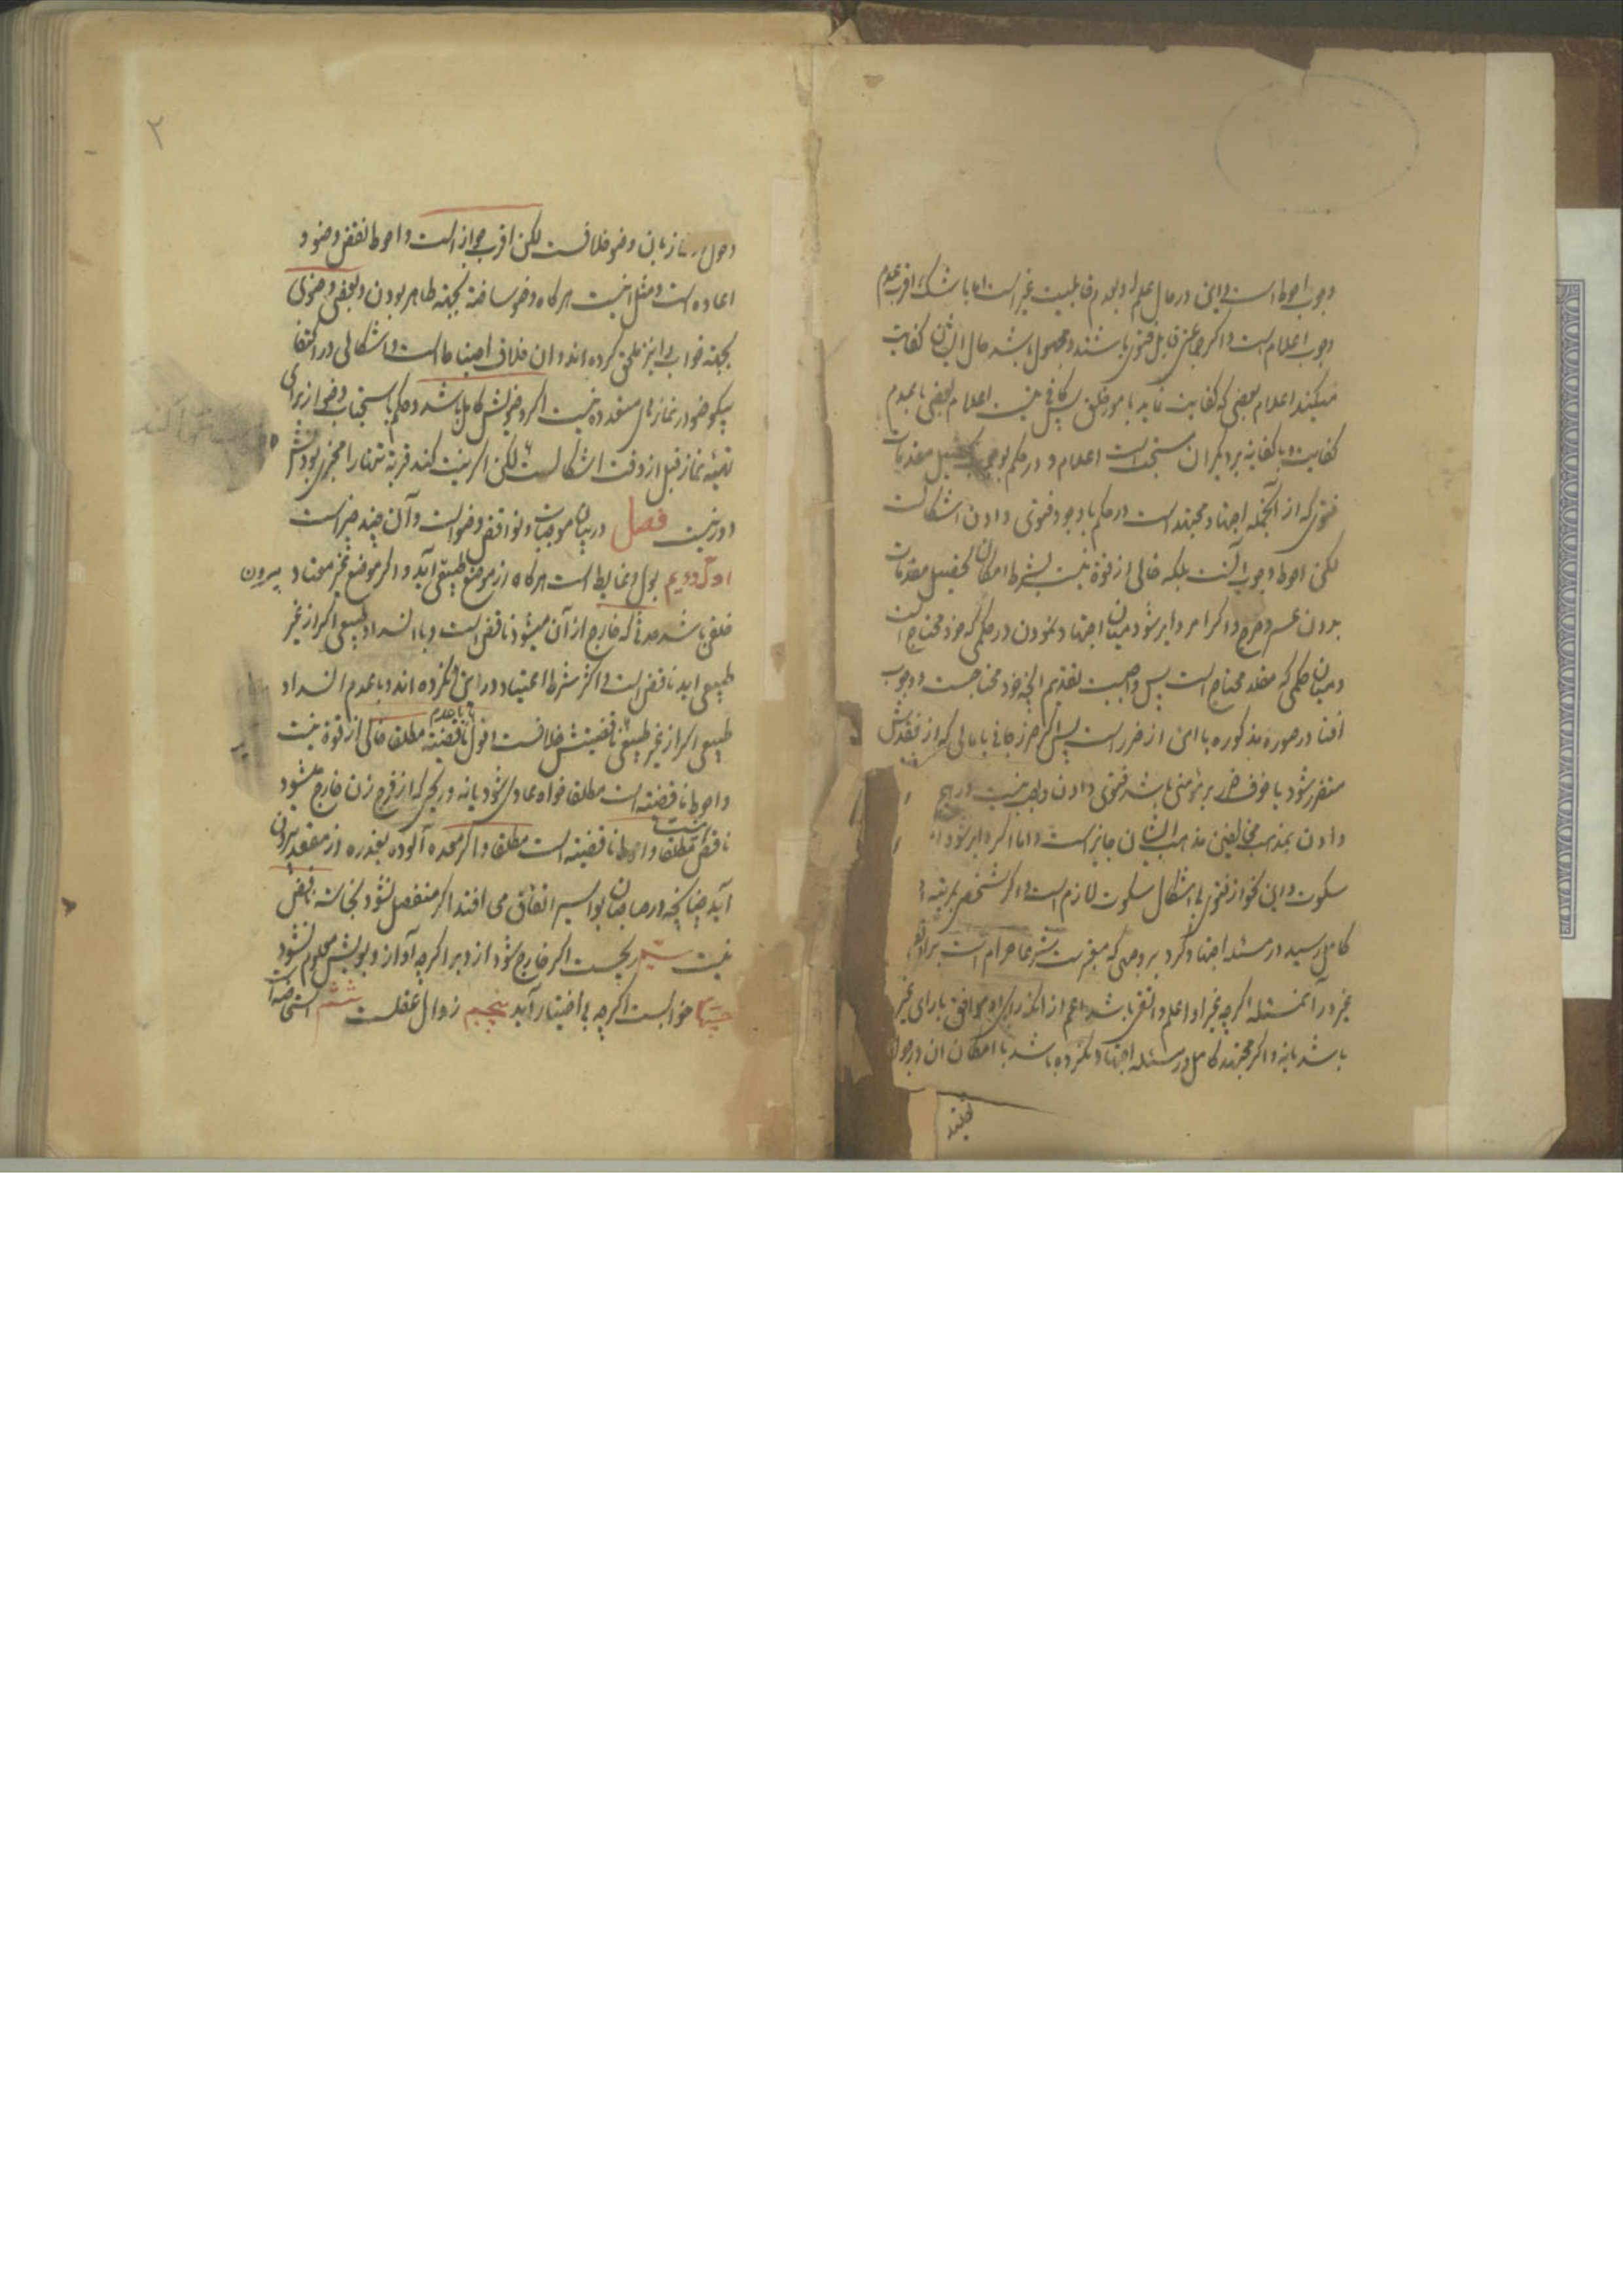 وجوب احوط است و این در حال علم او بعدم قابلیت غیر است اما با شک اقرب عدم
وجوب اعلام است و اگر جماعتی قابل فتوی باشند و مجهول باشد حال ایشان کفایت
میکند اعلام بعضی که کفایت نماید بامور خلق پس کافی نیست اعلام بعضی با عدم
کفایت و با کفایة بر دیگران مستحب است اعلام و در حکم بوجوب تحصیل مقدمات
فتوی که از آنجمله اجتهاد مجتهد است در حکم با وجود فتوی دادن اشکالست
لکن احوط وجوب آنست بلکه خالی از قوة نیست بشرط امکان تحصیل مقدمات
بدون عسر و حرج و اگر امر دایر شود میان اجتهاد نمودن در حکمی که خود محتاج است
و میان حکمی که مقلد محتاج است پس واجبست تقدیم آنچه خود محتاجست و وجوب
افتا در صورة مذکوره با امن از ضرر است پس اگر ضرر جانی یا مالی که از فقدش
متضرر شود یا خوف ضرر بر مؤمنی باشد فتوی دادن واجب نیست و
دادن بمذهب مخالفین مذهب ایشان جایز است و اما اگر دایر شود
سکوت و این نحو از فتوی بی اشکال سکوت لازم است و اگر شخصی بمرتبه
کامل رسید در مسئله اجتهاد کرد بر وجهی که معتبرست شرعا حرام است بر او
غیر در آنمسئله اگر چه غیر او اعلم و اتقی باشد اعم از آنکه رای او موافق با رای غیر
باشد یا نه و اگر مجتهد کامل در مسئله اجتهاد نکرده باشد با امکان ان در جواز
تقلید
۲
دخول در نماز بان وضو خلافست لکن اقرب جواز است و احوط نقض وضو و
اعاده است و مثل اینست هر گاه وضو ساخته بجهة طاهر بودن و بعضی وضوی
بجهة خواب را نیز ملحق کرده اند و ان خلاف احتیاط است و اشکالی در اکتفا
بیکوضو در نمازهای متعدده نیست اگر وضویش کامل باشد و حکم باستحباب وضو از برای
تهیئه نماز قبل از وقت اشکالست لکن اگر نیت کند قربة تنها را مجزی بودنش
دور نیست فصل در بیان موجبات و نواقض وضو است و آن چند چیز است
اول و دویم بول و غایط است هر گاه از موضع طبیعی آید و اگر موضع غیر معتاد بیرون
خلقی باشد حدثی که خارج از آن میشود ناقض است و با انسداد طبیعی اگر از غیر
طبیعی اید ناقض است و اکثر شرط اعتیاد در این نکرده اند و با عدم انسداد
طبیعی اگر از غیر طبیعی ناقضیتش خلافست اقول ناقضیة مطلقا خالی از قوة نیست
و احوط ناقضیة است مطلقا خواه عادی شود یا نه و ریحی که از فرج زن خارج میشود
ناقض است مطلقا و احوط ناقضیة است مطلقا و اگر معده آلوده بعذره از مقعد بیرون
آید چنانچه در صاحبان بواسیر اتفاق می افتد اگر منفصل نشود نجاسة ناقض
نیست سیم ریحست اگر خارج شود از دبر اگر چه آواز و بویش معلوم نشود
چهارم خوابست اگر چه بی اختیار آید پنجم زوال عقلست ششم استحاضه است